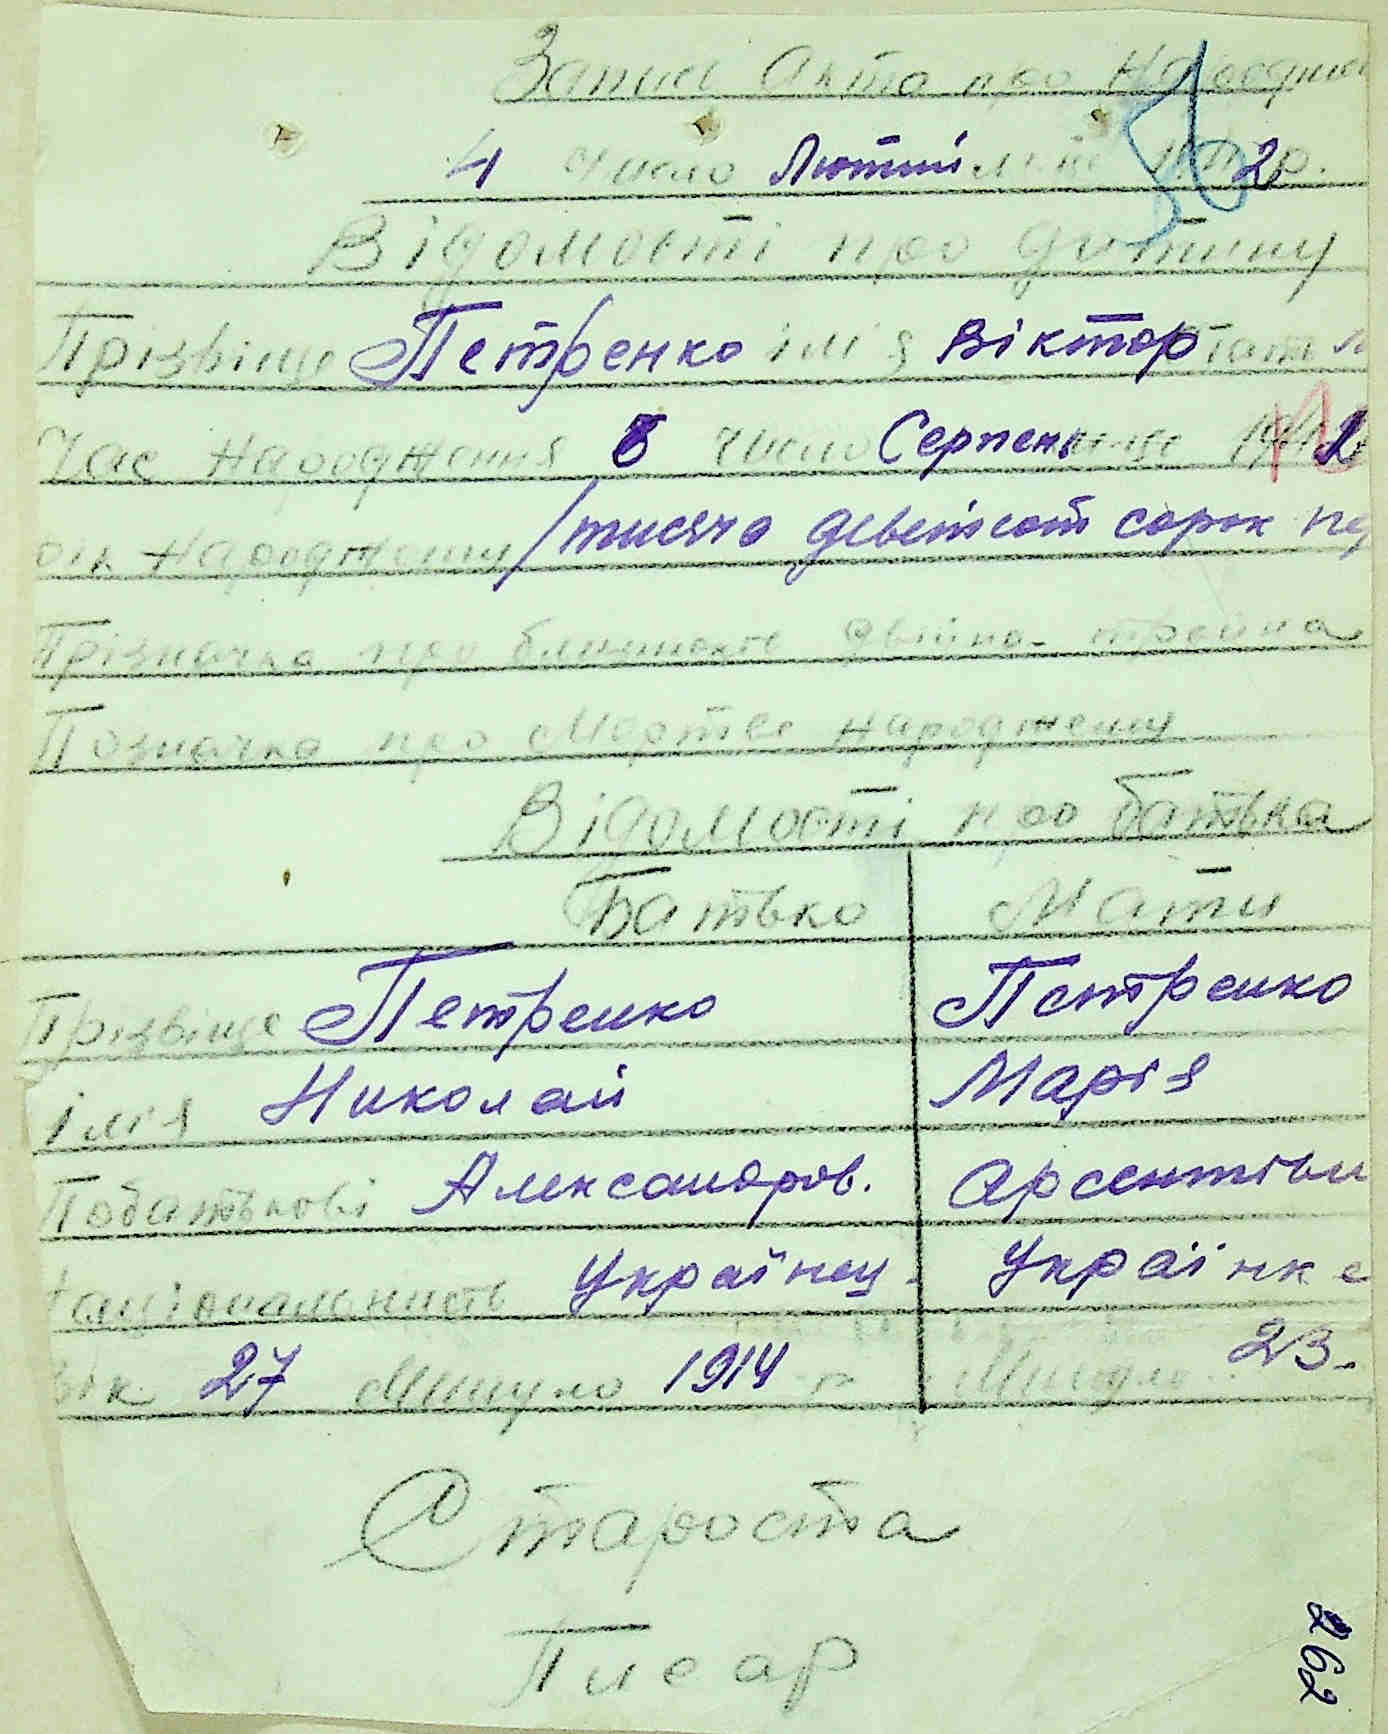 Запис Акта про Народжен
4 число Лютий місяц 1942 р.
Відомості про дитину
Прізвіще Петренко імія Віктор
Час Народження 6 число Серпень 194
рік Народження /тисяча деветсот сорок пе
Прізначка про близнюкі двійна-тройна
Позначка про Мертве народження
Відомості про батька
Батько Мати
Прізвіще Петренко Петренко
імія Николай Марія
Побатькові Александров. Арсентіви
Національнисть Українец. Українке
вік 27 Минуло 1914 г Минуло 23.
Староста
Писар
262